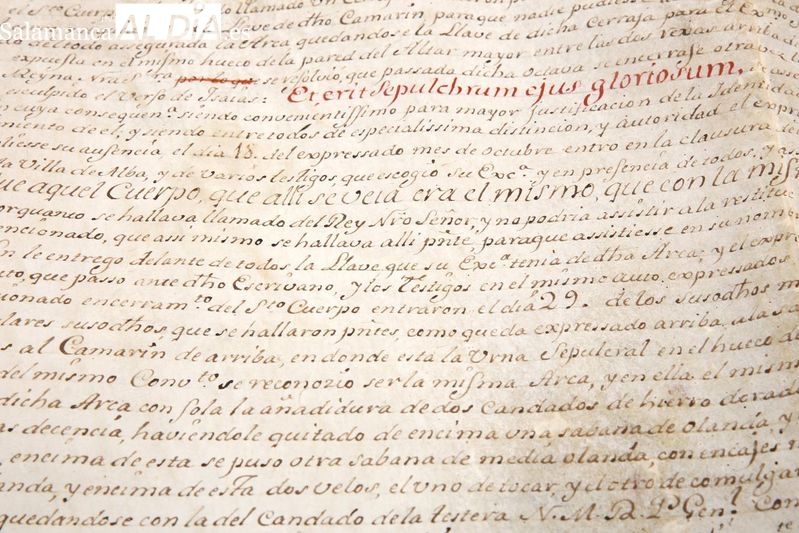 Salamanca AL DÍA.es
el Sto Cuerpo
llave de dho Camarin, paraque nadie pudiesse
do de todo assegurada la Arca, quedandose la Llave de dicha Cerraja para el Exmo
expuesta en el mismo hueco de la pared del Altar mayor entre las dos rexas arriba di
Reyna. Nra Sra por lo que se resolvio, que passada dicha octava se encerrase otra vez
esculpido el Verso de Isaias: Et erit Sepulchrum ejus gloriosum,
en cuya consequena siendo convenientissimo para mayor justificacion de la Identidad
miento de el; y siendo entre todos de especialissima distincion, y autoridad el expre
tiesse su ausencia, el dia 18. del expressado mes de octubre entro en la clausura de
la Villa de Alba, y de varios testigos, que escogió su Exca. y en presencia de todos, y as
ue aquel Cuerpo, que alli se veia era el mismo, que con la mis
orquanto se hallava llamado del Rey Nro Señor, y no podria assistir a la restitu
encionado, que assi mismo se hallava alli pnte, paraque assistiesse en su nomb
on le entrego delante de todos la Llave, que su Exca tenia de dha Arca; y el expre
uto, que passo ante dho Escrivano, y los testigos en el mismo auto, expressados
ionado encerramto. del Sto Cuerpo entraron el dia 29. de los susodhos m
lares susodhos, que se hallaron pntes, como queda expressado arriba, a la sa
s al Camarin de arriba, en donde està la Urna Sepulcral en el hueco de
del mismo Convto se reconozio ser la misma Arca, y en ella el mism
dicha Arca con sola la añadidura de dos Candados de hierro dorado
as decencia, haviendole quitado de encima una sabana de olanda, y
, encima de esta se puso otra sabana de media olanda con encajes
anda, y encima de esta dos velos, el uno de tocar, y el otro de comulgar
quedandose con la del Candado de la testera N. M. R. Pe Genl. Con
te